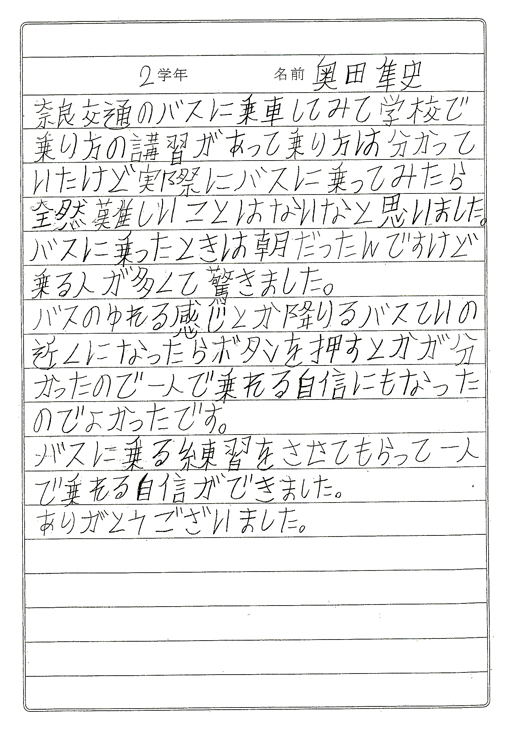 2学年 名前 奥田 隼史
奈良交通のバスに乗車してみて学校で
乗り方の講習があって乗り方は分かって
いたけど実際にバスに乗ってみたら
全然難しいことはないなと思いました。
バスに乗ったときは朝だったんですけど
乗る人が多くて驚きました。
バスのゆれる感じとか降りるバスていの
近くになったらボタンを押すとかが分
かったので一人で乗れる自信にもなった
のでよかったです。
バスに乗る練習をさせてもらって一人
で乗れる自信ができました。
ありがとうございました。